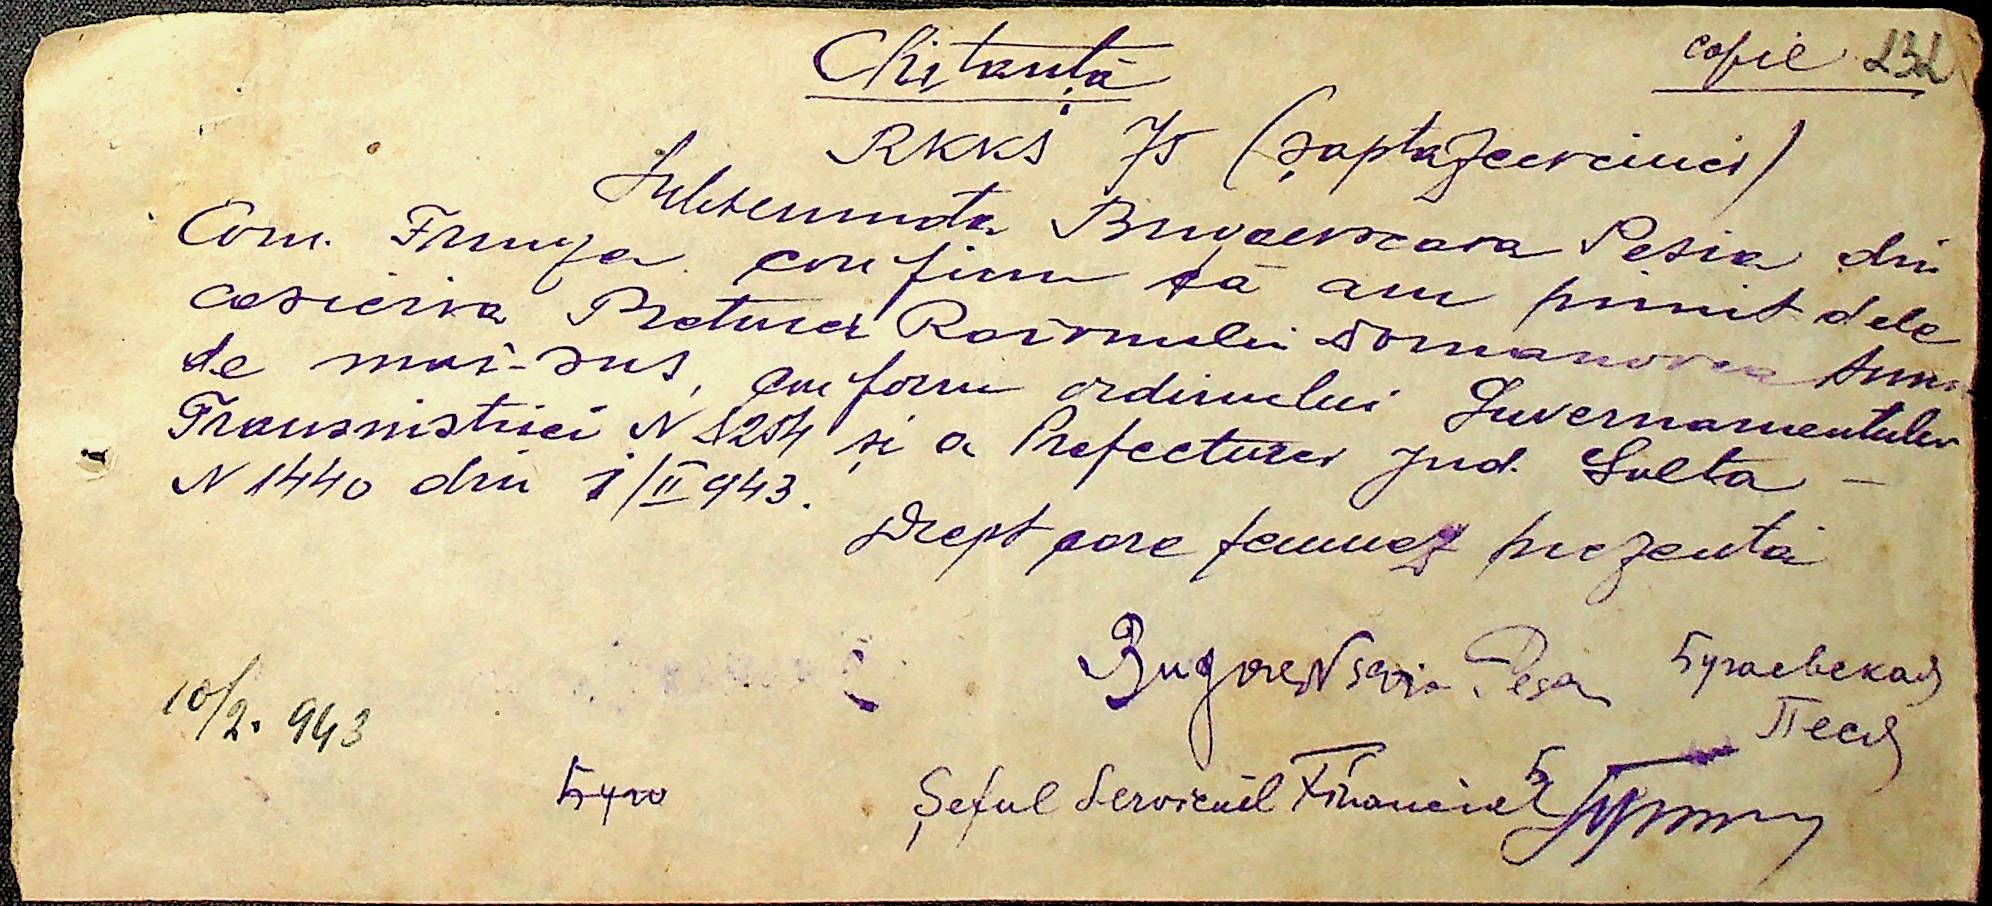 copie 232
Chitanță
RKKS 75 (șaptezecicinci)
Subsemnata Bugaevscaia Pesia din
Com. Frunza confirm că am primit dela
casieria Preturei Raionului Domanovca suma
de mai-sus, conform ordinului Guvernamentului
Transnistriei N 1204 și a Prefecturei Jud. Golta -
N 1440 din 1/II 943.
Drept care semnez prezenta
Bugaevscaia Pesa Бугаевская
Песя
10/2. 943
Буго Șeful Serviciul Financiar